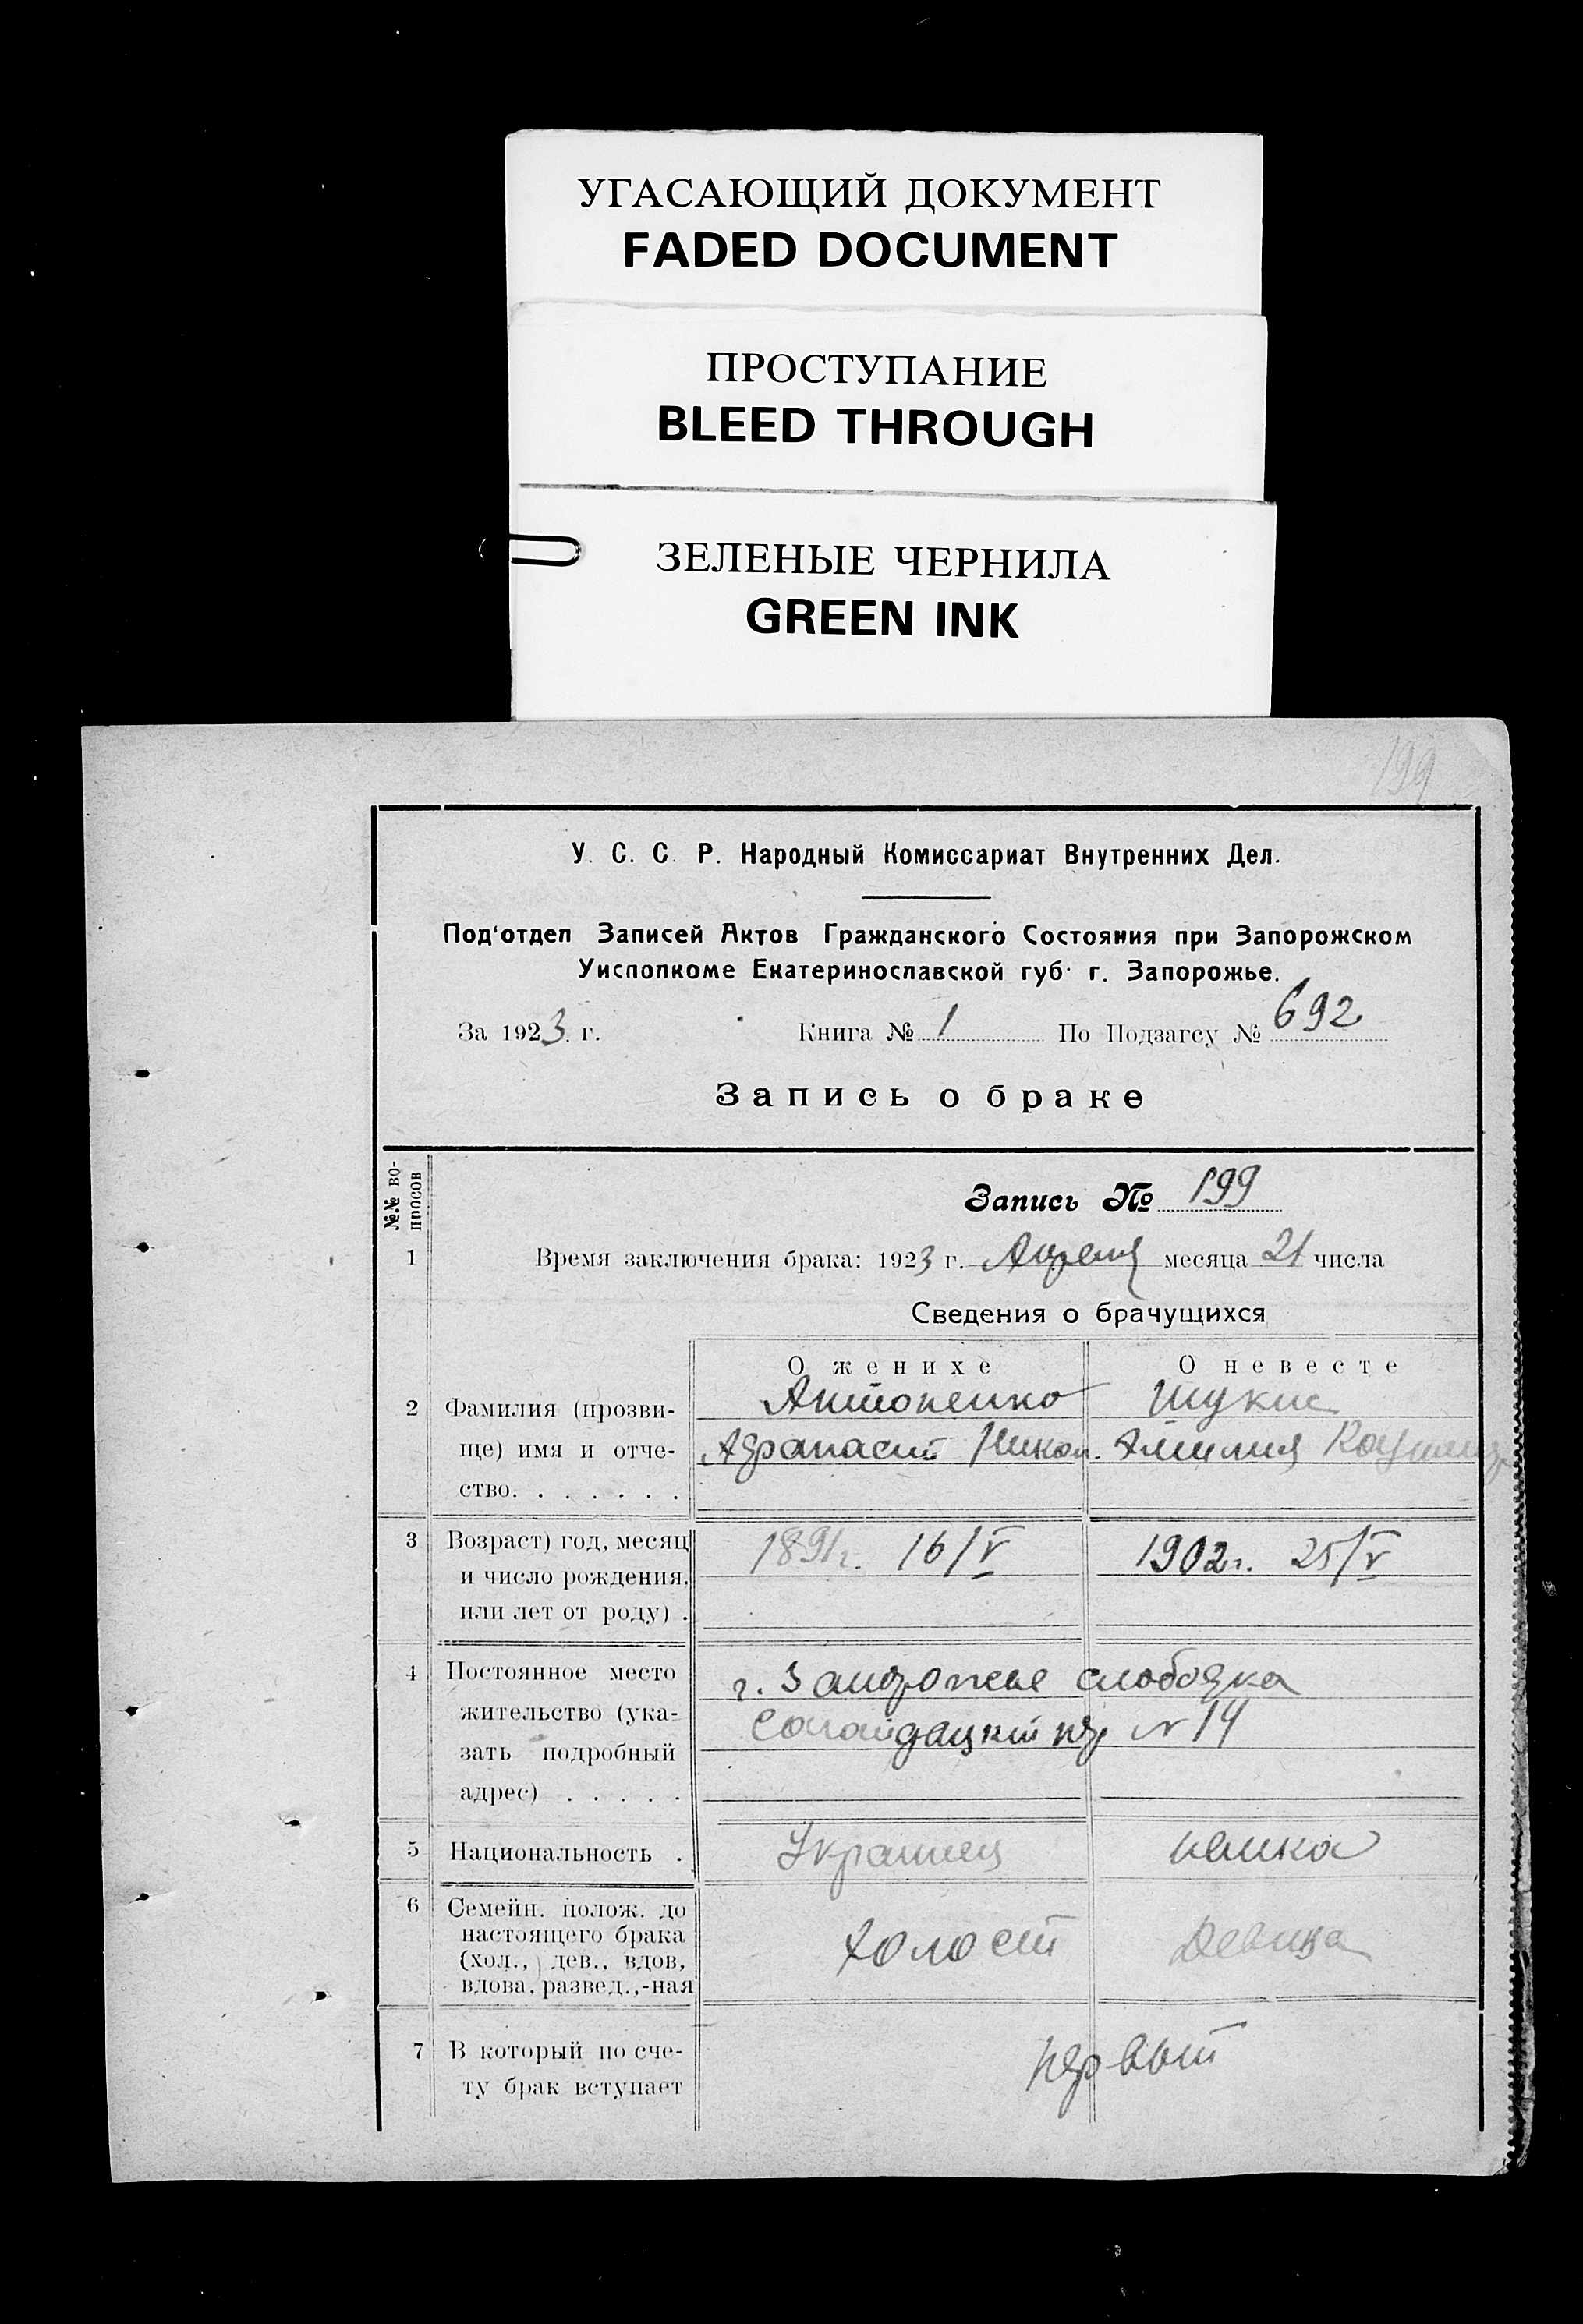 УГАСАЮЩИЙ ДОКУМЕНТ
FADED DOCUMENT
ПРОСТУПАНИЕ
BLEED THROUGH
ЗЕЛЕНЫЕ ЧЕРНИЛА
GREEN INK
199
У. С. С. Р. Народный Комиссариат Внутренних Дел.
Под'отдел Записей Актов Гражданского Состояния при Запорожском
Уисполкоме Екатеринославской губ. г. Запорожье.
За 1923 г. Книга № 1 По Подзагсу № 692
Запись о браке
№.№ во-
просов
Запись № 199
1 Время заключения брака: 1923 г. Апреля месяца 21 числа
Сведения о брачущихся
О женихе О невесте
2 Фамилия (прозви- Антоненко
ще) имя и отче- Афанасий Никол. Эмилия
ство. . . . . . .
3 Возраст) год, месяц 1891г. 16/V 1902г. 25/V
и число рождения.
или лет от роду) .
4 Постоянное место г. Запорожье слободка
жительство (ука- № 14
зать подробный
адрес) . . . . .
5 Национальность . Украинец немка
6 Семейн. полож. до
настоящего брака
(хол., дев., вдов, холост девица
вдова, развед.,-ная
7 В который по сче- первый
ту брак вступает